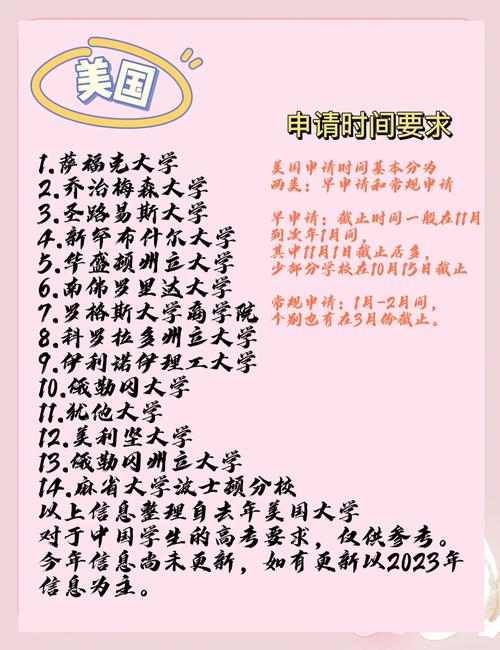 美国
申请时间要求
1.萨福克大学
2.乔治梅森大学
3.圣路易斯大学
4.新罕布什尔大学
5.华盛顿州立大学
6.南佛罗里达大学
7.罗格斯大学商学院
8.科罗拉多州立大学
9.伊利诺伊理工大学
10.俄勒冈大学
11.犹他大学
12.美利坚大学
13.俄勒冈州立大学
14.麻省大学波士顿分校
以上信息整理自去年美国大学
对于中国学生的高考要求，仅供参考。
今年信息尚未更新，如有更新以2023年
信息为主。
美国申请时间基本分为
两类：早申请和常规申请
早申请：截止时间一般在11月
到次年1月间，
其中11月1日截止居多，
少部分学校在10月15日截止
常规申请：1月-2月间，
个别也有在3月份截止。